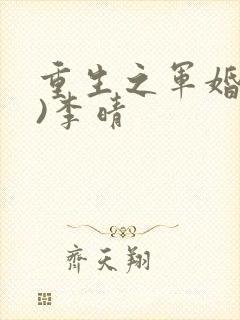 重生之军婚
)李晴
齐天翔